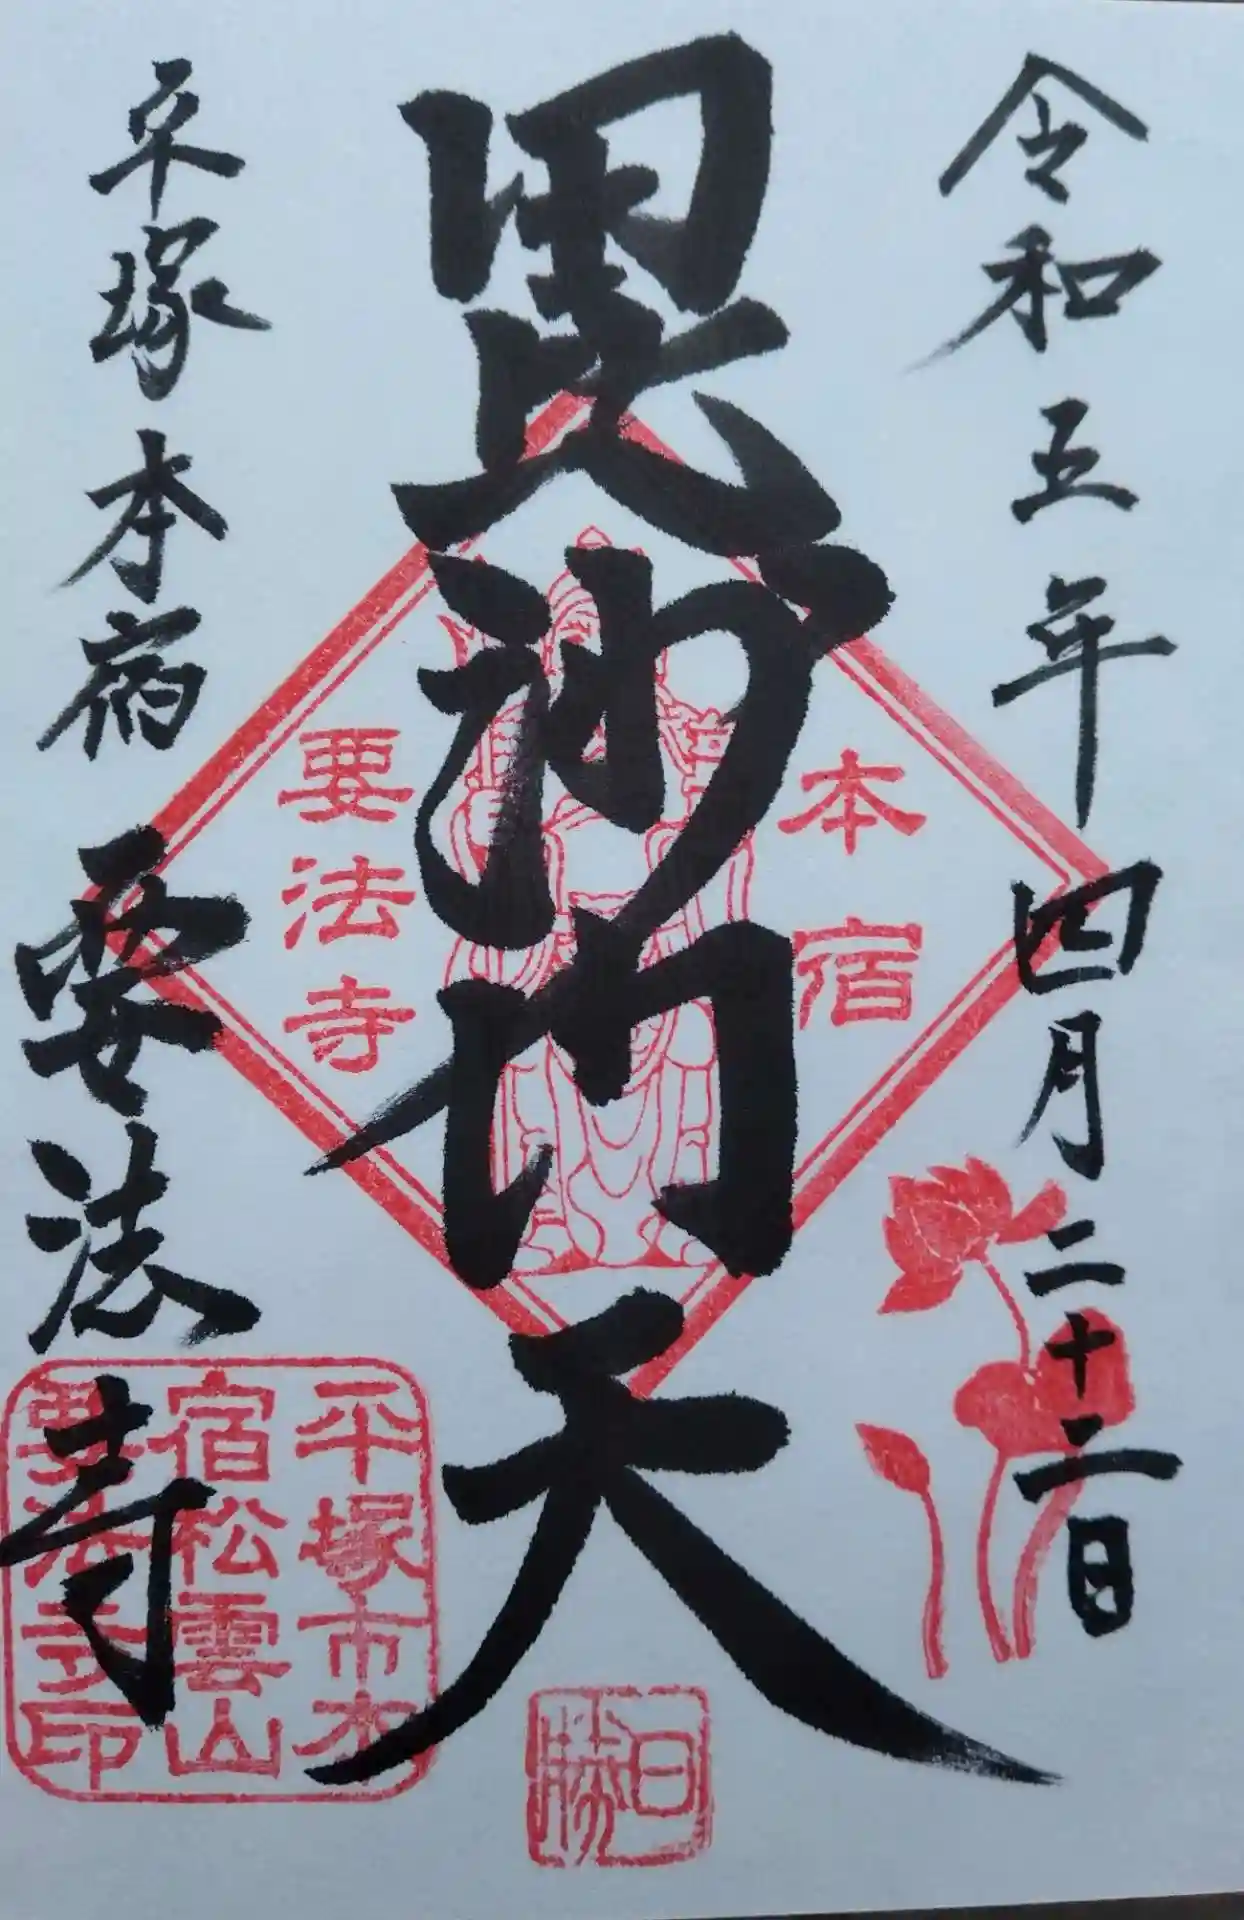 令和五年四月二十二日
毘沙門天
平塚本宿
要法寺
本宿
要法寺
平塚市本
宿松雲山
要法寺印
日勝